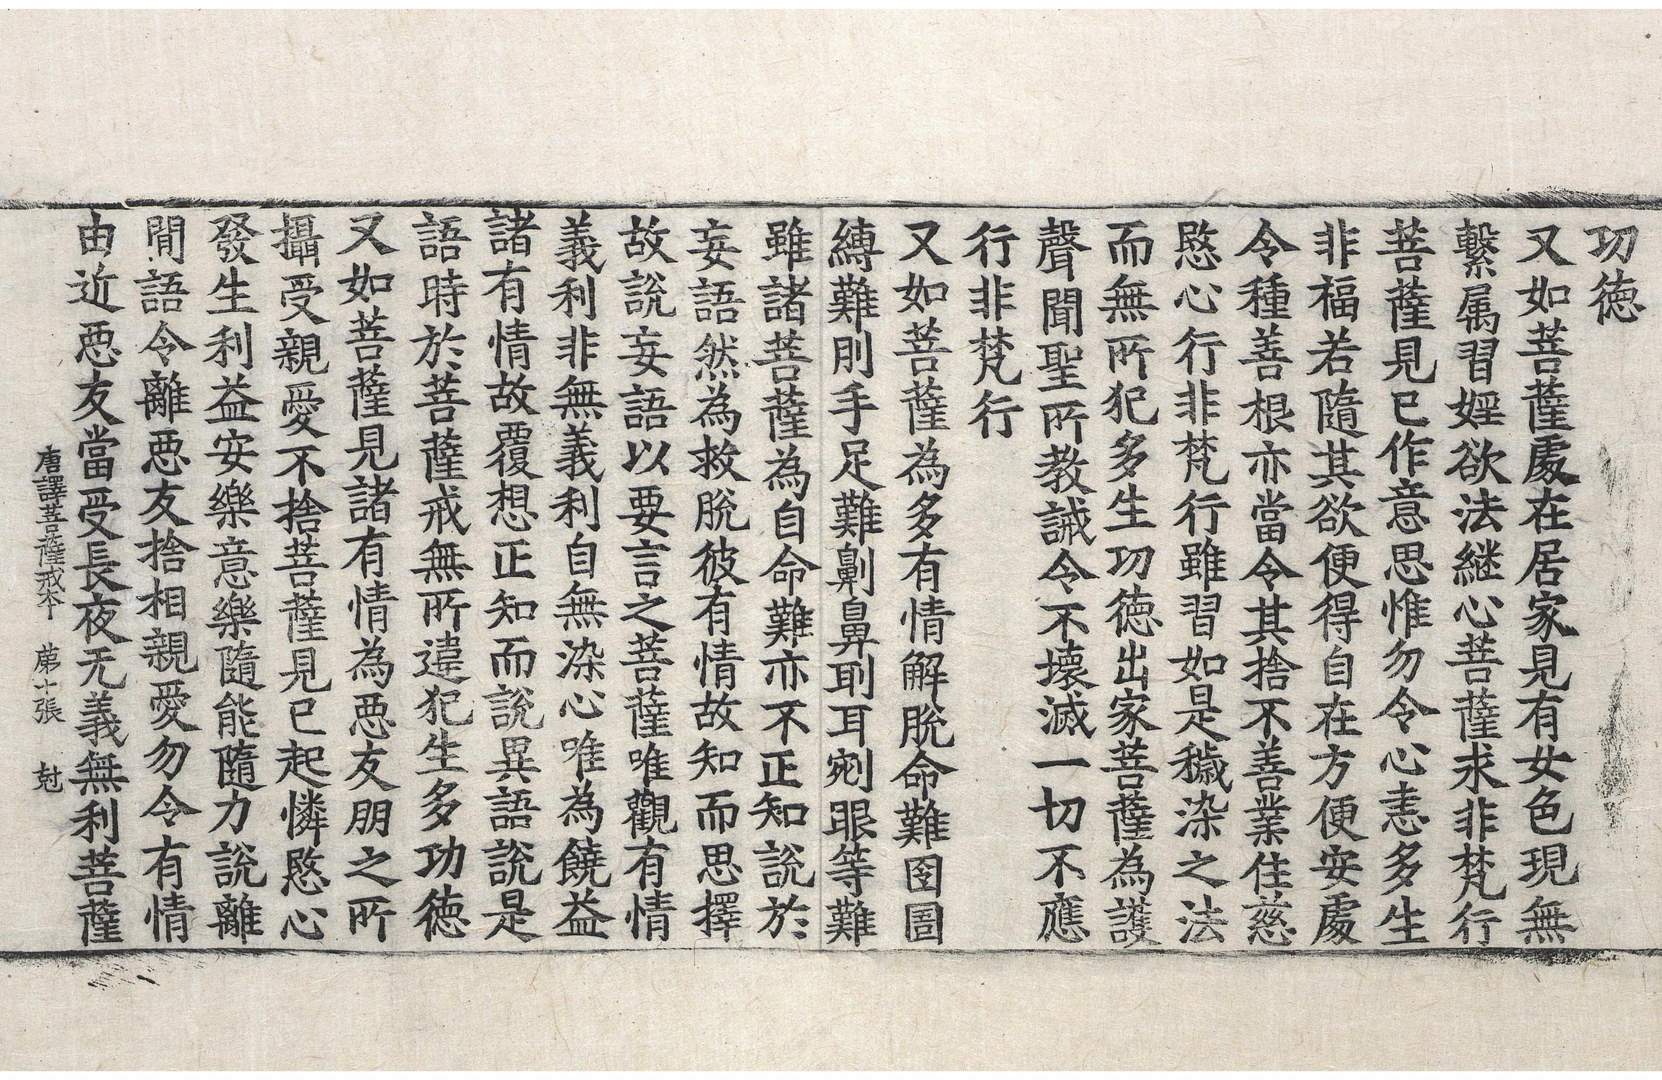 功徳
又如菩薩處在居家見有女色現無
繫属習婬欲法継心菩薩求非梵行
菩薩見已作意思惟勿令心恚多生
非福若隨其欲便得自在方便安處
令種善根亦當令其捨不善業住慈
愍心行非梵行雖習如是穢染之法
而無所犯多生功徳出家菩薩為護
聲聞聖所教誡令不壞滅一切不應
行非梵行
又如菩薩為多有情解脫命難囹圄
縛難刖手足難劓鼻刵耳剜眼等難
雖諸菩薩為自命難亦不正知說於
妄語然為救脫彼有情故知而思擇
故說妄語以要言之菩薩唯觀有情
義利非無義利自無染心唯為饒益
諸有情故覆想正知而說異語說是
語時於菩薩戒無所違犯生多功徳
又如菩薩見諸有情為悪友朋之所
攝受親愛不捨菩薩見已起憐愍心
發生利益安樂意樂隨能隨力說離
間語令離悪友捨相親愛勿令有情
由近悪友當受長夜无義無利菩薩
唐譯菩薩戒本 苐十張 尅